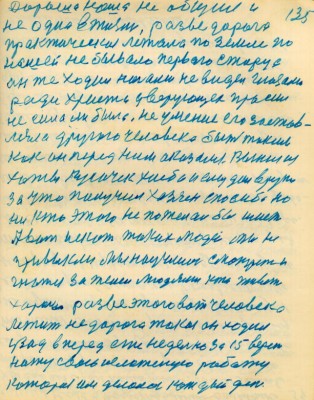 135
Дорогая наша не общий и
не одна в жизни, разве дорога
практически лежала по земле по
нашей не бывало первого старца
он же ходил ногами не видел глазами
ради Христа у верующих просил
не сила им было, не умение его застав-
ляла другого человека быть таким
как он перед ним оказался Вынисли
хотя кусочек хлеба ему дай в руки
за что получил хозяин спасибо но
ни кто этого не пожелал бы иметь
А вот искать таких людей мы не
привыкли мы научились
гнаться за теми людьми кто живет
хорошо разве этого вот человека
лежит не дорога такая он ходил
взад вперед еже неделно за 15 верст
на жу свою не легкую работу
которая им делалась каждый день